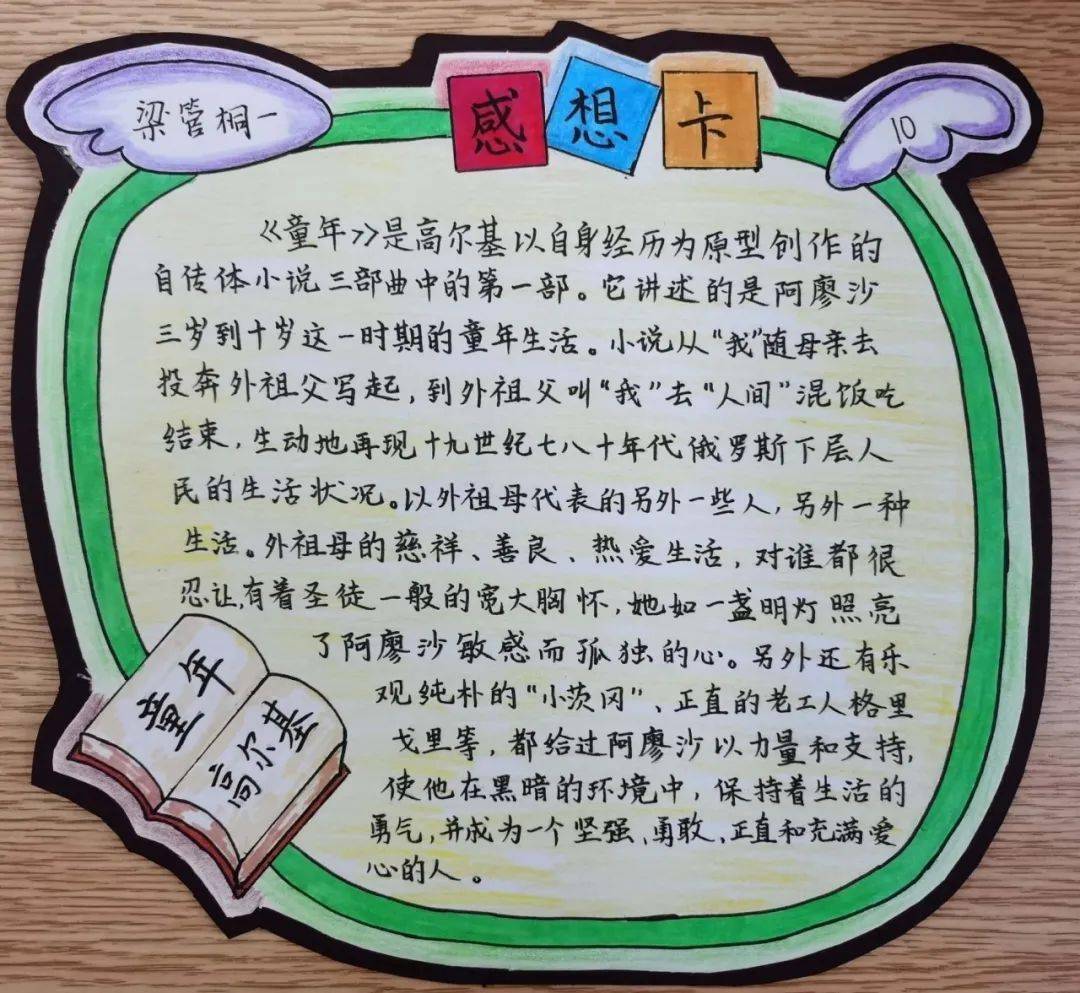 梁管桐一
感想卡
10
《童年》是高尔基以自身经历为原型创作的
自传体小说三部曲中的第一部。它讲述的是阿廖沙
三岁到十岁这一时期的童年生活。小说从“我”随母亲去
投奔外祖父写起，到外祖父叫“我”去“人间”混饭吃
结束，生动地再现十九世纪七八十年代俄罗斯下层人
民的生活状况。以外祖母代表的另外一些人，另外一种
生活。外祖母的慈祥、善良、热爱生活，对谁都很
忍让，有着圣徒一般的宽大胸怀，她如一盏明灯照亮
了阿廖沙敏感而孤独的心。另外还有乐
观纯朴的“小茨冈”、正直的老工人格里
戈里等，都给过阿廖沙以力量和支持，
使他在黑暗的环境中，保持着生活的
勇气，并成为一个坚强、勇敢、正直和充满爱
心的人。
童年
高尔基